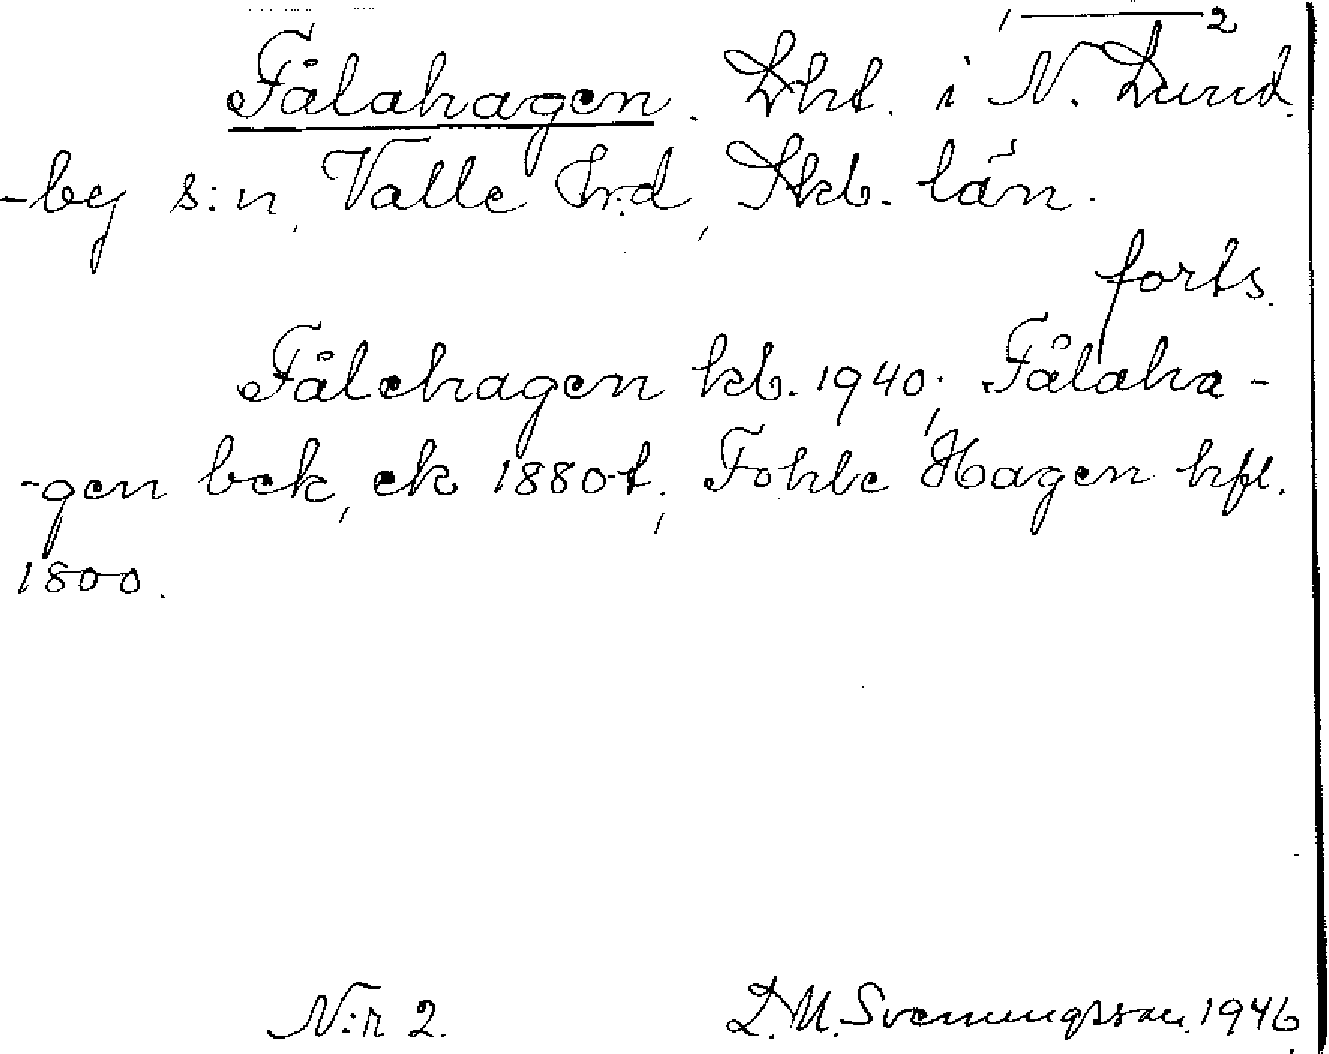 1 — 2
Fålahagen. Lht. i N. Lund
-by s:n, Valle Hrd, Skb. län.
forts.
Fålehagen kb. 1940; Fålaha-
-gen bek, ek 1880-t.; Fohle Hagen hfl.
1800.
N:r 2. D.M. Svenningsson. 1946